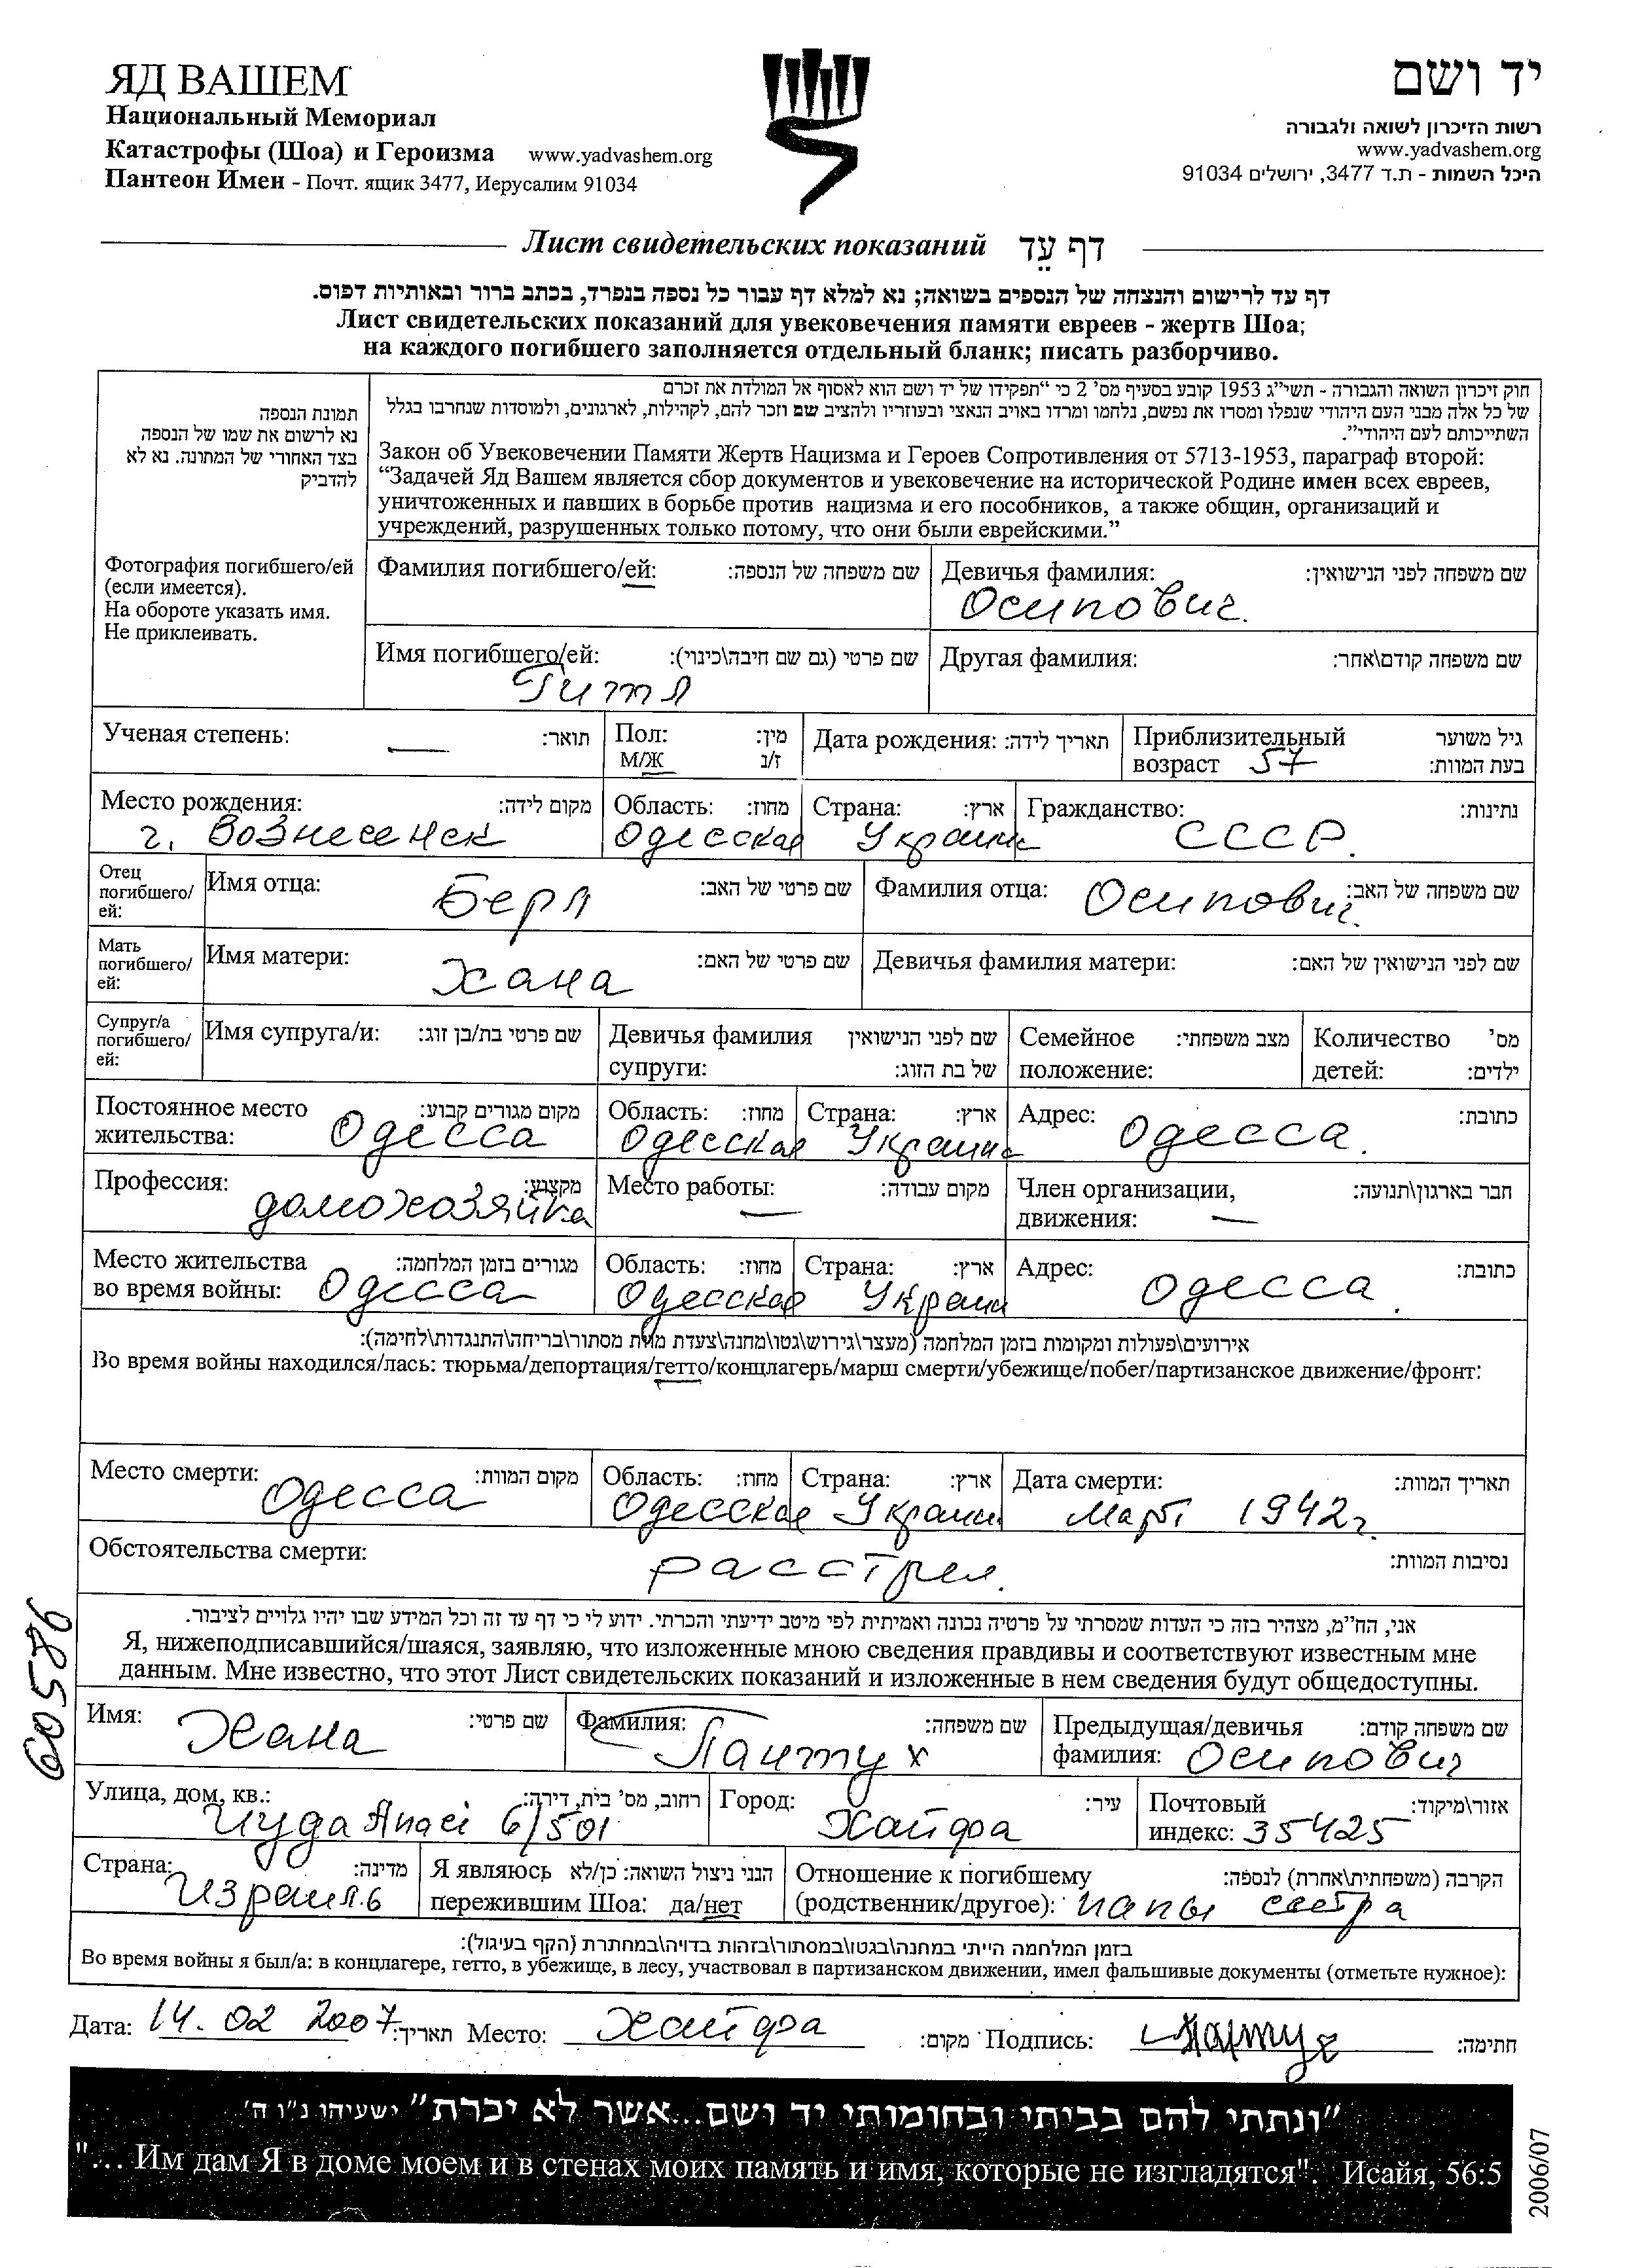 ЯД ВАШЕМ
Национальный Мемориал
Катастрофы (Шоа) и Героизма www.yadvashem.org
Пантеон Имен - Почт. ящик 3477, Иерусалим 91034
יד ושם
רשות הזיכרון לשואה ולגבורה
www.yadvashem.org
היכל השמות - ת.ד 3477, ירושלים 91034
Лист свидетельских показаний דף עֵד
דף עד לרישום והנצחה של הנספים בשואה; נא למלא דף עבור כל נספה בנפרד, בכתב ברור ובאותיות דפוס.
Лист свидетельских показаний для увековечения памяти евреев - жертв Шоа;
на каждого погибшего заполняется отдельный бланк; писать разборчиво.
תמונת הנספה
נא לרשום את שמו של הנספה
בצד האחורי של התמונה. נא לא
להדביק
Фотография погибшего/ей
(если имеется).
На обороте указать имя.
Не приклеивать.
חוק זיכרון השואה והגבורה - תשי"ג 1953 קובע בסעיף מס' 2 כי "תפקידו של יד ושם הוא לאסוף אל המולדת את זכרם
של כל אלה מבני העם היהודי שנפלו ומסרו את נפשם, נלחמו ומרדו באויב הנאצי ובעוזריו ולהציב שם וזכר להם, לקהילות, לארגונים, ולמוסדות שנחרבו בגלל
השתייכותם לעם היהודי".
Закон об Увековечении Памяти Жертв Нацизма и Героев Сопротивления от 5713-1953, параграф второй:
“Задачей Яд Вашем является сбор документов и увековечение на исторической Родине имен всех евреев,
уничтоженных и павших в борьбе против нацизма и его пособников, а также общин, организаций и
учреждений, разрушенных только потому, что они были еврейскими.”
Фамилия погибшего/ей: שם משפחה של הנספה:
Девичья фамилия: שם משפחה לפני הנישואין:
Осипович.
Имя погибшего/ей: שם פרטי (גם שם חיבה\כינוי):
Гитл
Другая фамилия: שם משפחה קודם\אחר:
Ученая степень: — תואר:
Пол: מין:
М/Ж ז/נ
Дата рождения: תאריך לידה:
Приблизительный גיל משוער
возраст 57 בעת המוות:
Место рождения: מקום לידה:
г. Вознесенск
Область: מחוז:
Одесская
Страна: ארץ:
Украина
Гражданство: נתינות:
СССР.
Отец
погибшего/
ей:
Имя отца: שם פרטי של האב:
Берл
Фамилия отца: שם משפחה של האב:
Осипович.
Мать
погибшего/
ей:
Имя матери: שם פרטי של האם:
Хана
Девичья фамилия матери: שם לפני הנישואין של האם:
Супруг/а
погибшего/
ей:
Имя супруга/и: שם פרטי בת/בן זוג:
Девичья фамилия שם לפני הנישואין
супруги: של בת הזוג:
Семейное מצב משפחתי:
положение:
Количество מס'
детей: ילדים:
Постоянное место מקום מגורים קבוע:
жительства: Одесса
Область: מחוז:
Одесская
Страна: ארץ:
Украина
Адрес: כתובת:
Одесса.
Профессия: מקצוע:
домохозяйка
Место работы: מקום עבודה:
—
Член организации, חבר בארגון\תנועה:
движения: —
Место жительства מגורים בזמן המלחמה:
во время войны: Одесса
Область: מחוז:
Одесская
Страна: ארץ:
Украин
Адрес: כתובת:
Одесса.
אירועים\פעולות ומקומות בזמן המלחמה (מעצר\גירוש\גטו\מחנה\צעדת מוות מסתור\בריחה\התנגדות\לחימה):
Во время войны находился/лась: тюрьма/депортация/гетто/концлагерь/марш смерти/убежище/побег/партизанское движение/фронт:
Место смерти: מקום המוות:
Одесса
Область: מחוז:
Одесская
Страна: ארץ:
Украин
Дата смерти: תאריך המוות:
Март 1942г.
Обстоятельства смерти: נסיבות המוות:
расстрел.
אני, הח"מ, מצהיר בזה כי העדות שמסרתי על פרטיה נכונה ואמיתית לפי מיטב ידיעתי והכרתי. ידוע לי כי דף עד זה וכל המידע שבו יהיו גלויים לציבור.
Я, нижеподписавшийся/шаяся, заявляю, что изложенные мною сведения правдивы и соответствуют известным мне
данным. Мне известно, что этот Лист свидетельских показаний и изложенные в нем сведения будут общедоступны.
Имя: שם פרטי:
Хана
Фамилия: שם משפחה:
Пантух
Предыдущая/девичья שם משפחה קודם:
фамилия: Осипович
Улица, дом, кв.: רחוב, מס' בית, דירה:
6/501
Город: עיר:
Хайфа
Почтовый אזור\מיקוד:
индекс: 35425
Страна: מדינה:
Израиль
Я являюсь הנני ניצול השואה: כן/לא
пережившим Шоа: да/нет
Отношение к погибшему הקרבה (משפחתית\אחרת) לנספה:
(родственник/другое): папы сестра
בזמן המלחמה הייתי במחנה\בגטו\במסתור\בזהות בדויה\במחתרת (הקף בעיגול):
Во время войны я был/а: в концлагере, гетто, в убежище, в лесу, участвовал в партизанском движении, имел фальшивые документы (отметьте нужное):
Дата: 14.02 2007 תאריך: Место: Хайфа מקום: Подпись: חתימה:
"ונתתי להם בביתי ובחומותי יד ושם...אשר לא יכרת" ישעיהו נ"ו ה'
"... Им дам Я в доме моем и в стенах моих память и имя, которые не изгладятся". Исайя, 56:5
605786
2006/07